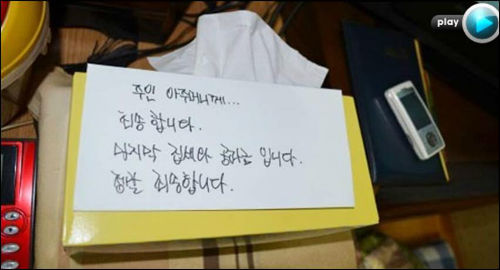 play
주인 아주머니께...
죄송합니다.
마지막 집세와 공과금 입니다.
정말 죄송합니다.